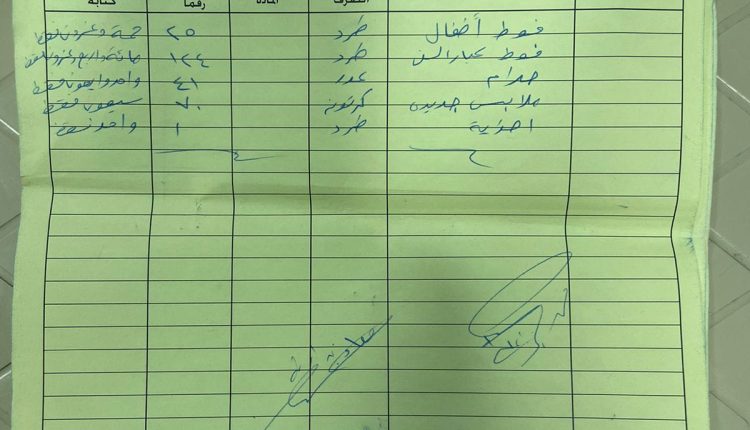 المادة رقما كتابة
فوط أطفال طرد ٢٥ خمسة وعشرون فقط
فوط كبار السن طرد ١٢٤ مائة واربع وعشرون فقط
حرام عدد ٤١ واحد واربعون فقط
ملابس جديده كرتونه ٧٠ سبعون فقط
احذية طرد ١ واحد فقط